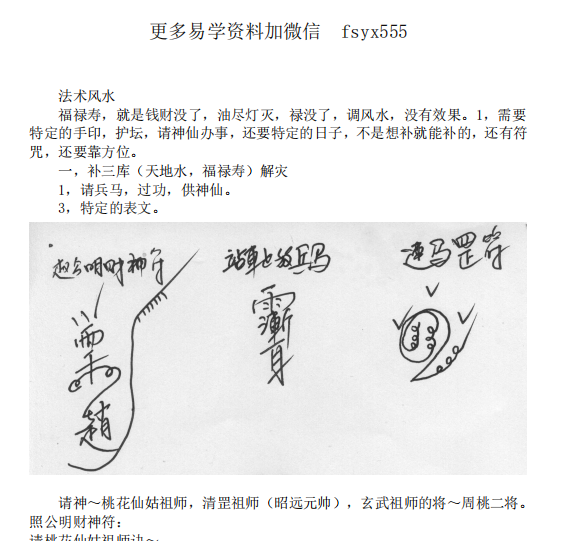 更多易学资料加微信 fsyx555
法术风水
福禄寿，就是钱财没了，油尽灯灭，禄没了，调风水，没有效果。1，需要
特定的手印，护坛，请神仙办事，还要特定的日子，不是想补就能补的，还有符
咒，还要靠方位。
一，补三库（天地水，福禄寿）解灾
1，请兵马，过功，供神仙。
3，特定的表文。
赵公明财神符
兵马
速马罡符
趙
请神～桃花仙姑祖师，清罡祖师（昭远元帅），玄武祖师的将～周桃二将。
照公明财神符：
请桃花仙姑祖师诀～